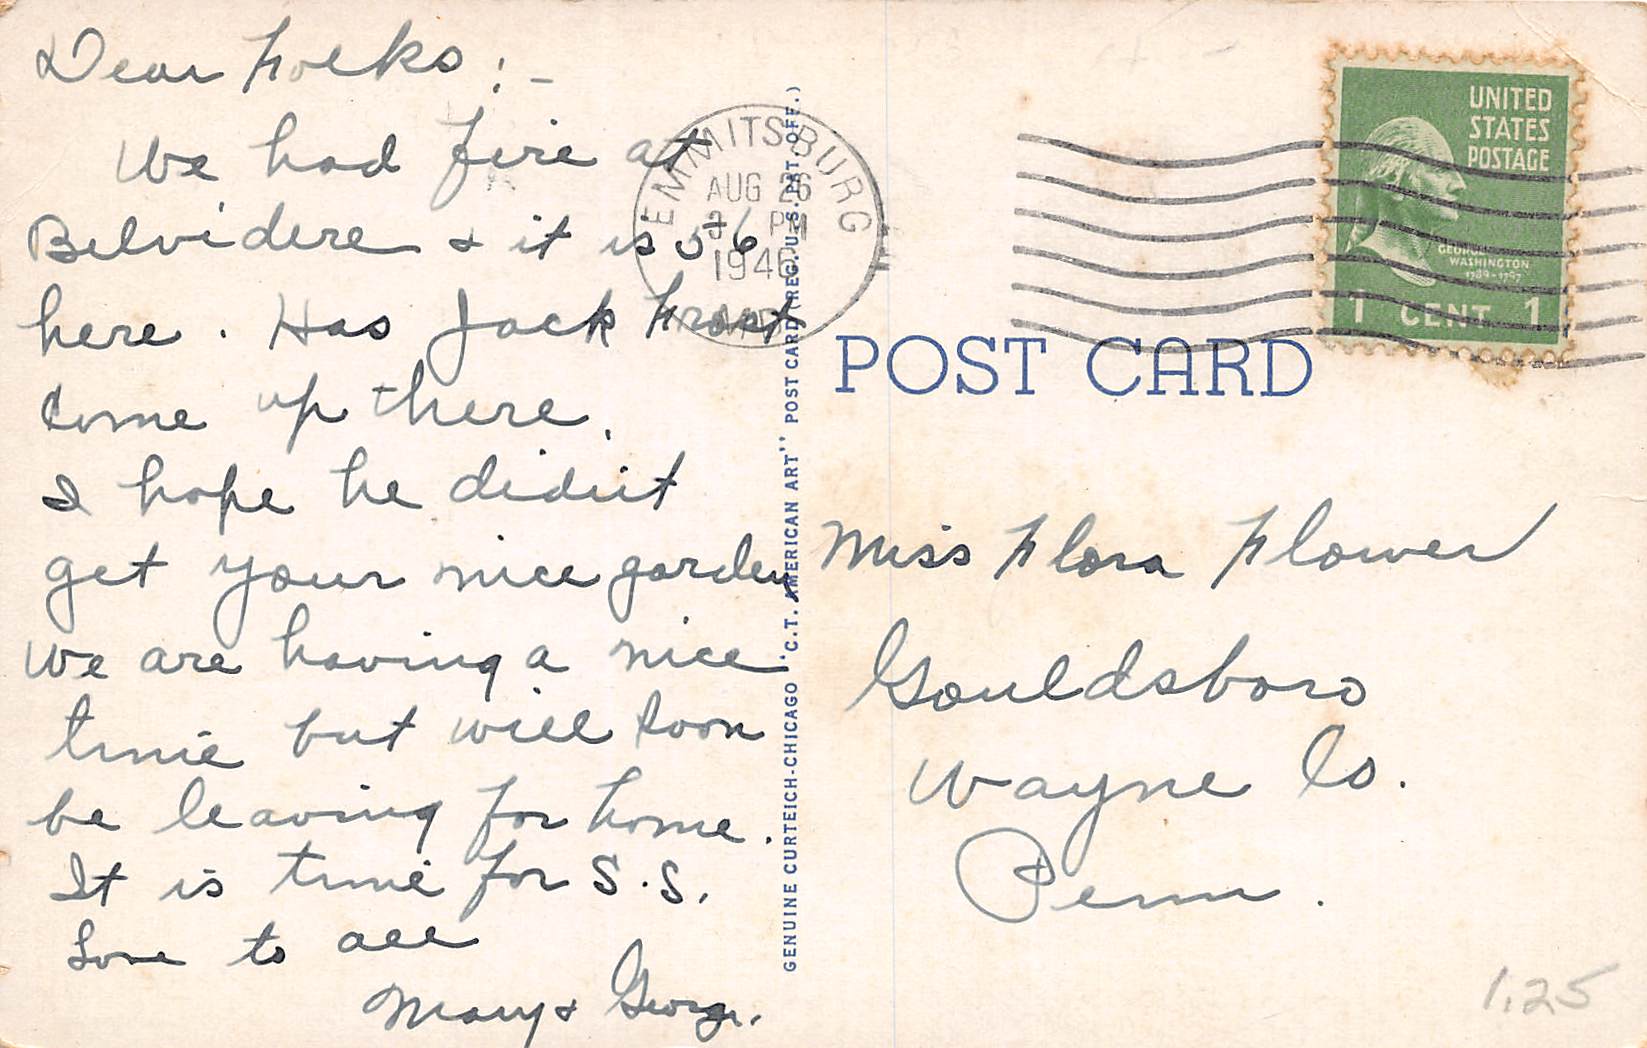 Dear Folks : -
We had fire at
Belvidere & it is 56
here. Has Jack Frost
come up there.
I hope he didn't
get your nice garden
We are having a nice
time but will soon
be leaving for home.
It is time for S.S.
Love to all
Mary & George.
GENUINE CURTEICH-CHICAGO "C.T. AMERICAN ART" POST CARD (REG. U.S. PAT. OFF.)
EMMITSBURG
AUG 26
PM
1946
UNITED
STATES
POSTAGE
GEORGE
WASHINGTON
1789-1797
1 CENT 1
POST CARD
Miss Flora Flower
Gouldsboro
Wayne Co.
Penn.
1.25